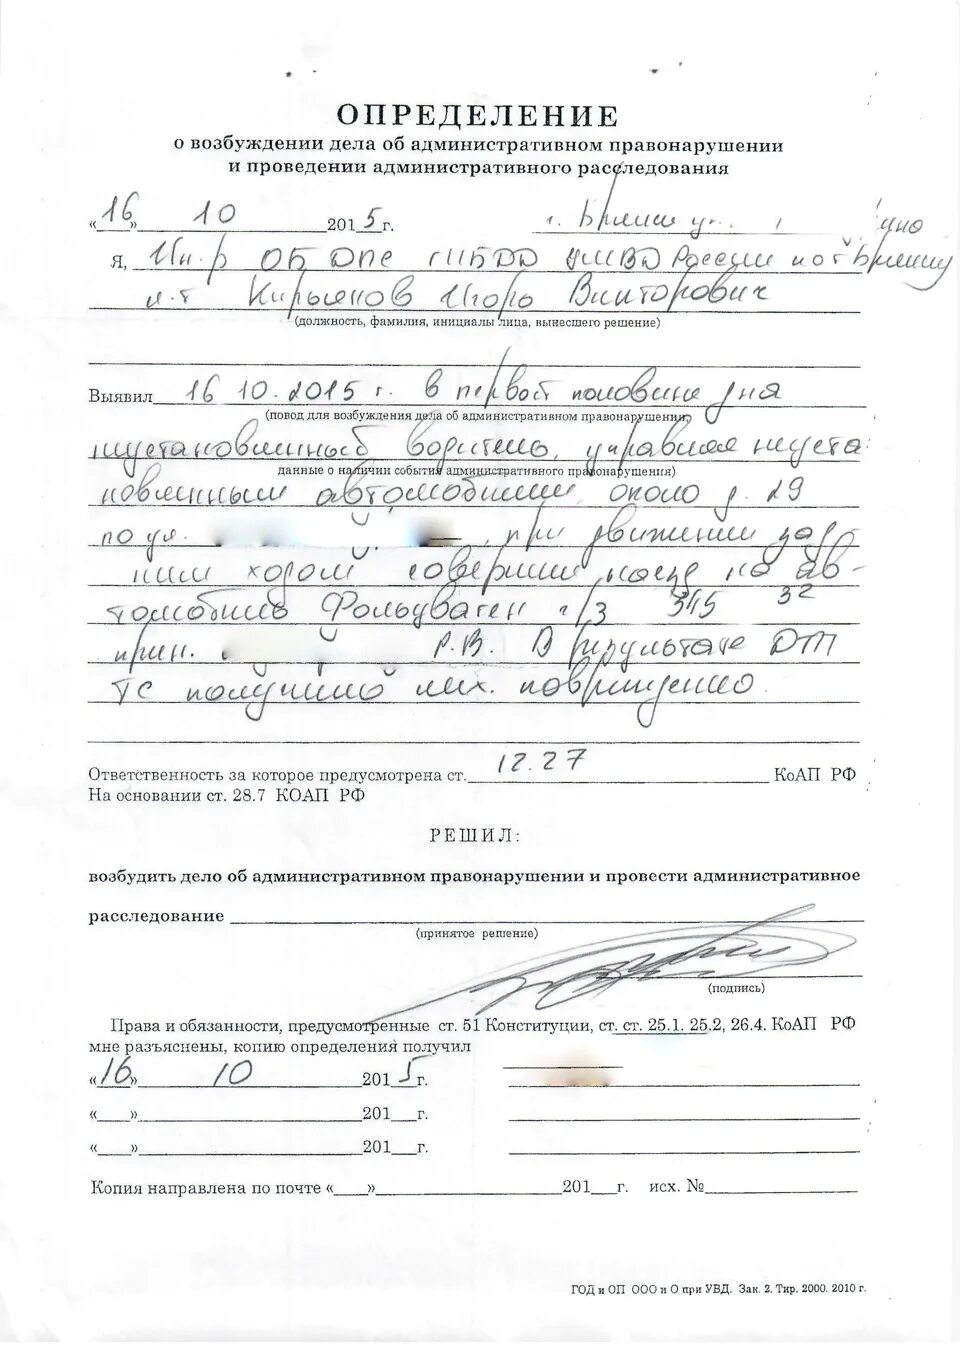 ОПРЕДЕЛЕНИЕ
о возбуждении дела об административном правонарушении
и проведении административного расследования
«16» 10 2015г. г. Брянск ул.
Я, Ин-р ОБ ДПС ГИБДД УМВД России по г Брянску
л-т Кирьянов Игорь Викторович
(должность, фамилия, инициалы лица, вынесшего решение)
Выявил 16 10.2015 г. в первой половине дня
(повод для возбуждения дела об административном правонарушении,
неустановленный водитель, управляя неуста-
данные о наличии события административного правонарушения)
новленным автомобилем, около д. 29
по ул. , при движении зад-
ним ходом совершил наезд на ав-
томобиль Фольцваген г/з 345 32
прин. Р.В. В результате ДТП
ТС получило мех. повреждение
Ответственность за которое предусмотрена ст. 12.27 КоАП РФ
На основании ст. 28.7 КОАП РФ
РЕШИЛ:
возбудить дело об административном правонарушении и провести административное
расследование
(принятое решение)
(подпись)
Права и обязанности, предусмотренные ст. 51 Конституции, ст. ст. 25.1. 25.2, 26.4. КоАП РФ
мне разъяснены, копию определения получил
«16» 10 2015г.
«___» 201__г.
«___» 201__г.
Копия направлена по почте «___» 201__г. исх. №
ГОД и ОП ООО и О при УВД. Зак. 2. Тир. 2000. 2010 г.